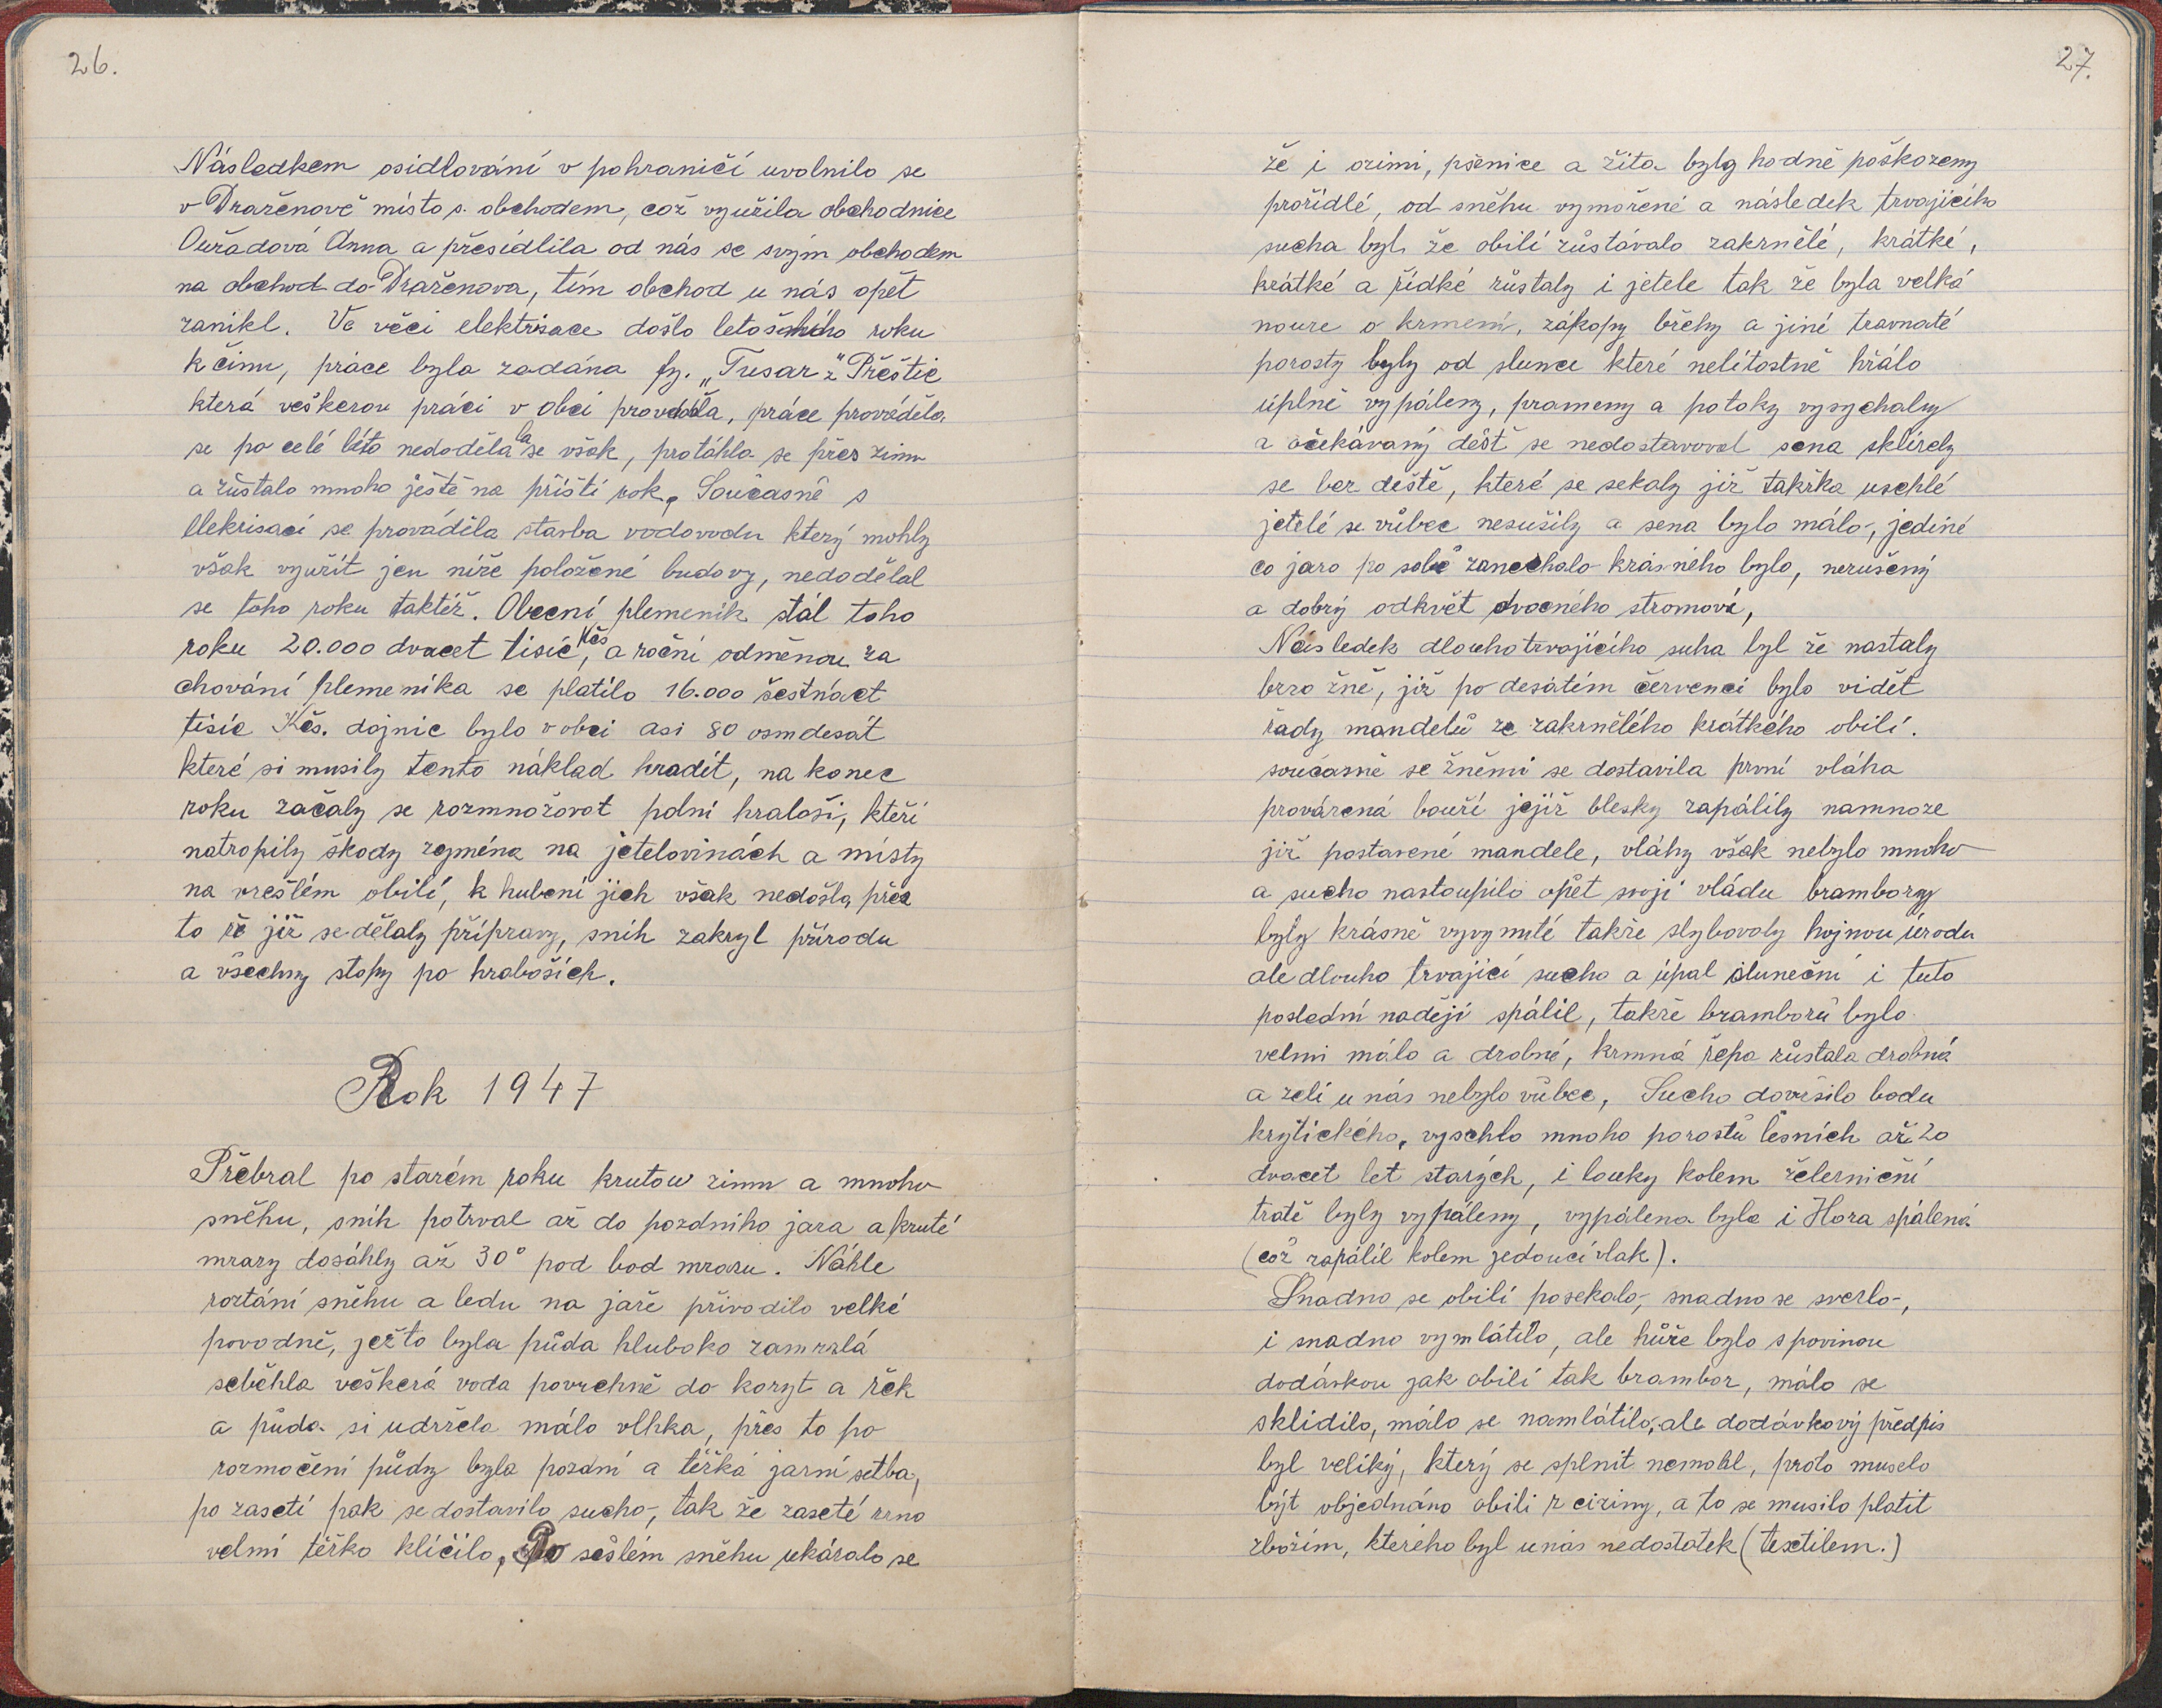 26.
Následkem osidlování v pohraničí uvolnilo se
v Draženově místo s. obchodem, což využila obchodnice
Ouřadová Anna a přesídlila od nás se svým obchodem
na obchod do Draženova, tím obchod u nás opět
zanikl. Ve věci elektrisace došlo letošního roku
k činu, práce byla zadána fy. „Tusar" z Přeštic
která veškerou práci v obci prováděla, práce prováděla
se po celé léto nedodělala se však, protáhla se přes zimu
a zůstalo mnoho ještě na příští rok, Současně s
elekrisací se prováděla stavba vodovodu který mohly
však využít jen níže položené budovy, nedodělal
se toho roku taktéž. Obecní plemeník stál toho
roku 20.000 dvacet tisíc Kčs, a roční odměnou za
chování plemeníka se platilo 16.000 šestnáct
tisíc Kčs. dojnic bylo v obci asi 80 osmdesát
které si musily tento náklad hradit, na konec
roku začaly se rozmnožovat polní hraboši, kteří
natropily škody zejména na jetelovinách a místy
na vzešlém obilí, k hubení jich však nedošlo, přes
to že již se dělaly přípravy, sníh zakryl přírodu
a všechny stopy po hraboších.
Rok 1947
Přebral po starém roku krutou zimu a mnoho
sněhu, sníh potrval až do pozdního jara a kruté
mrazy dosáhly až 30° pod bod mrazu. Náhle
roztání sněhu a ledu na jaře přivodilo velké
povodně, ježto byla půda hluboko zamrzlá
seběhla veškerá voda povrchně do koryt a řek
a půda si udržela málo vlhka, přes to po
rozmočení půdy byla pozdní a těžká jarní setba,
po zasetí pak se dostavilo sucho, tak že zaseté zrno
velmi těžko klíčilo, Po sešlém sněhu ukázalo se
27.
že i ozimi, pšenice a žita byly hodně poškozeny
prořídlé, od sněhu vymořené a následek trvajícího
sucha byl, že obilí zůstávalo zakrnělé, krátké,
krátké a řídké zůstaly i jetele tak že byla velká
nouze o krmení, zákopy břehy a jiné travnaté
porosty byly od slunce které nelítostně hřálo
úplně vypáleny, prameny a potoky vysychaly
a očekávaný déšť se nedostavoval sena sklízely
se bez deště, které se sekaly již takřka uschlé
jetelé se vůbec nesušily a sena bylo málo, jediné
co jaro po sobě zanechalo krásného bylo, nerušený
a dobrý odkvět ovocného stromoví,
Následek dlouhotrvajícího suha byl že nastaly
brzo žně, již po desátém červenci bylo vidět
řady mandelů ze zakrnělého krátkého obilí.
současně se žněmi se dostavila první vláha
provázená bouří jejíž blesky zapálily namnoze
již postavené mandele, vláhy však nebylo mnoho
a sucho nastoupilo opět svoji vládu brambory
byly krásně vyvynuté takže slybovaly hojnou úrodu
ale dlouho trvající sucho a úpal sluneční i tuto
poslední nadějí spálil, takže bramborů bylo
velmi málo a drobné, krmná řepa zůstala drobná
a zelí u nás nebylo vůbec, Sucho dovršilo bodu
krytického, vyschlo mnoho porostů lesních až 20
dvacet let starých, i louky kolem želerniční
tratě byly vypáleny, vypálena byla i Hora spálená
(což zapálil kolem jedoucí vlak).
Snadno se obilí posekalo, snadno se svezlo,
i snadno vymlátilo, ale hůře bylo s povinou
dodávkou jak obilí tak brambor, málo se
sklidilo, málo se namlátilo, ale dodávkový předpis
byl veliký, který se splnit nemohl, proto muselo
být objednáno obili z ciziny, a to se musilo platit
zbožím, kterého byl u nás nedostatek (textilem.)